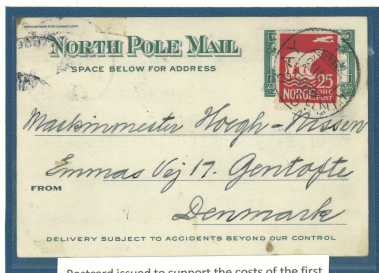 NORTH POLE MAIL
SPACE BELOW FOR ADDRESS
NORGE 25
ØRE
POST
Maskinmester Høegh-Nissen
Emmas Vej 17. Gentofte
FROM
Denmark
DELIVERY SUBJECT TO ACCIDENTS BEYOND OUR CONTROL
Postcard issued to support the costs of the first